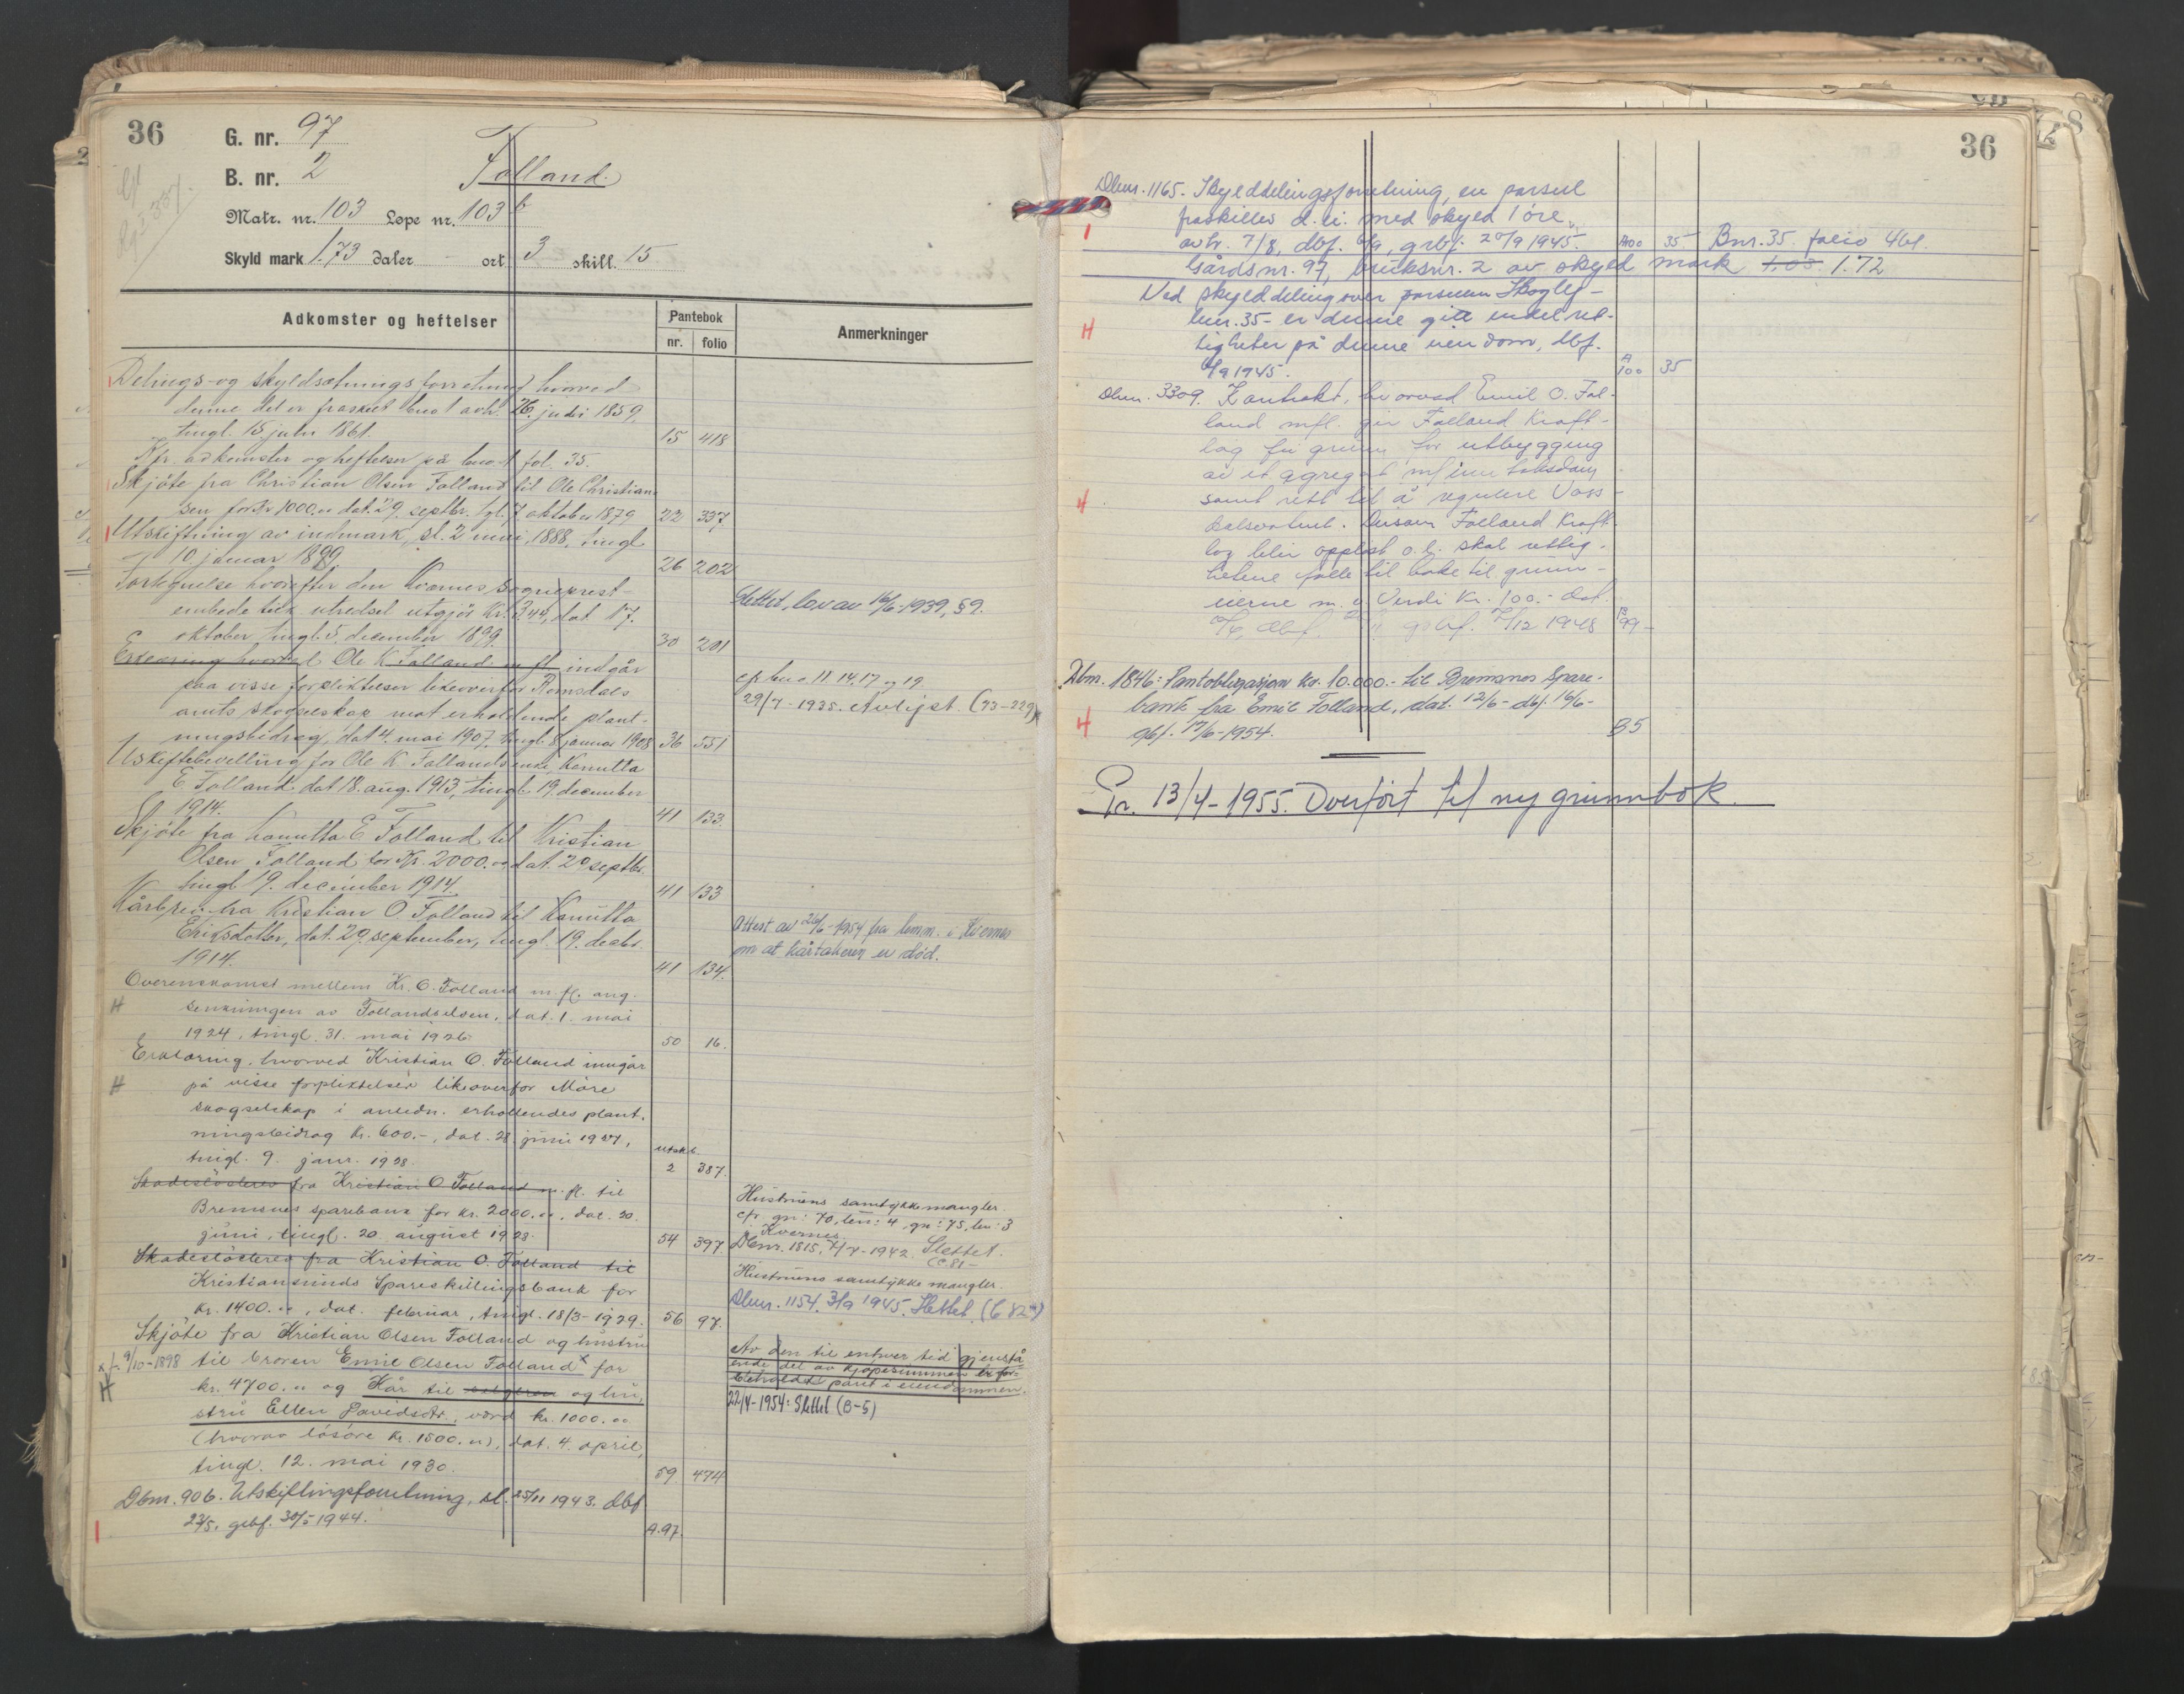 36
G. nr. 97
B. nr. 2
Folland.
Matr. nr. 103 Løpe nr. 103 b
Skyld mark 1.73 daler - ort 3 skill. 15
Adkomster og heftelser
Pantebok
nr. folio
Anmerkninger
Delings- og skyldsætningsforretning hvorved
denne del er fraskilt bno 1 avh. 26. juli 1859,
tingl. 15 juli 1861. 15 418
Kfr. adkomster og heftelser på bno 1 fol. 35.
Skjöte fra Christian Olsen Folland til Ole Christian-
sen for Kr 1000.00 dat. 29 septbr. tgl. 7 oktober 1879 22 337
Utskiftning av indmark, sl. 2 mai 1888, tingl
10 januar 1899. 26 202
Fortegnelse hvorefter den Kvernes sogneprest-
embede utredsel utgjör Kr. 3,44, dat 17.
oktober tingl. 5. december 1899. 30 201
Slettet, lov av 16/6-1939, § 2.
Erklæring hvorved Ole K Folland m fl. indgår
paa visse forpliktelser likeoverfor Romsdals
amts skogselskap mot erholdende plant-
ningsbidrag, dat 4. mai 1907, tingl. 8 januar 1908 36 551
cfr bno 11. 14, 17 og 19
29/7-1935. Avlyst. (73-229)
Uskiftebevilling for Ole K Follands enke, Kanutta
E Folland dat 18. aug. 1913, tingl 19. december
1914. 41 133.
Skjöte fra Kanutta E Folland til Kristian
Olsen Folland for Kr. 2000.00 dat. 29 septbr.
tingl 19. december 1914. 41 133
Kårbrev fra Kristian O. Folland til Kanutta
Eriksdotter, dat. 29. september, tingl. 19. decbr.
1914. 41 134.
Attest av 26/6-1954 fra lensm. i Kvernes
om at kårtakeren er död.
Overenskomst mellem Kr. O. Folland m. fl. ang.
H senkningen av Follandselven, dat. 1. mai
1924, tingl. 31. mai 1926. 50 16.
Erklæring, hvorved Kristian O. Folland inngår
H på visse forpliktelser likeoverfor Möre
skogselskap i anledn. erholdendes plant-
ningsbidrag kr. 600.-, dat. 28 juni 1927,
tingl. 9. janr. 1928. utskb. 2 387.
Skadeslösbrev fra Kristian O Folland m. fl. til
Bremsnes sparebank for kr. 2000.00, dat. 30.
juni, tingl. 20 august 1928. 54 397
Hustruens samtykke mangler.
cfr. gn: 70, bn: 4, gn: 75, bn: 3
Kvernes
Dbnr. 1815, 7/7-1942. Slettet.
(C 81-
Skadeslösbrev fra Kristian O. Folland til
Kristiansunds Spareskillingsbank for
kr. 1400.00, dat. februar, tingl. 18/3-1929. 56 97.
Hustruens samtykke mangler.
Dbnr. 1154. 3/9 1945. Slettet. (C 82)
Skjöte fra Kristian Olsen Folland og hustru
x f. 9/10-1898 til broren Emil Olsen Folland x for
H kr. 4700.00 og Kår til selgeren og hu-
stru Ellen Davidsdtr, værd kr. 1000.00
(hvorav lösöre kr. 1500.00), dat. 4. april,
tingl. 12. mai 1930. 59. 474
Av den til enhver tid gjenstå-
ende del av kjöpesummen er for-
beholdt pant i eiendommen.
22/4-1954: Slettet (B-5)
Dbnr. 906. Utskiftningsforretning, sl. 25/11 1943. dbf
23/5, grbf. 30/5 1944. A. 97.
36
Dbnr. 1165. Skylddelingsforretning, en parsell
fraskilles d. ei. med skyld 1 öre,
avh. 7/8, dbf. 6/9, grbf. 20/9 1945. A100 35 Bnr. 35. folio 461.
Gårdsnr. 97, bruksnr. 2 av skyld mark 1,03 1.72
Ved skylddeling over parsellen Skogly -
H bnr. 35- er denne gitt endel ret-
tigheter på denne eiendom, dbf.
6/9 1945. A 100 35
Dbnr. 3309. Kontrakt, hvorved Emil O. Fol-
land mfl. gir Folland Kraft-
lag fri grunn for utbygging
av et agregat m/ inntaksdam
H samt rett til å regulere Vass-
dalsvatnet. Dersom Folland Kraft-
lag blir opplöst o. l. skal rettig-
hetene falle tilbake til grunn-
eierne m. v. Verdi kr. 100.- dat.
12 1948 B 99-
Dbnr. 1846: Pantobligasjon kr. 10.000.- til Bremsnes Spare-
bank fra Emil Folland, dat. 12/6- dbf. 16/6-
H gbf. 17/6-1954. B5
Pr. 13/4-1955. Overfört til ny grunnbok.